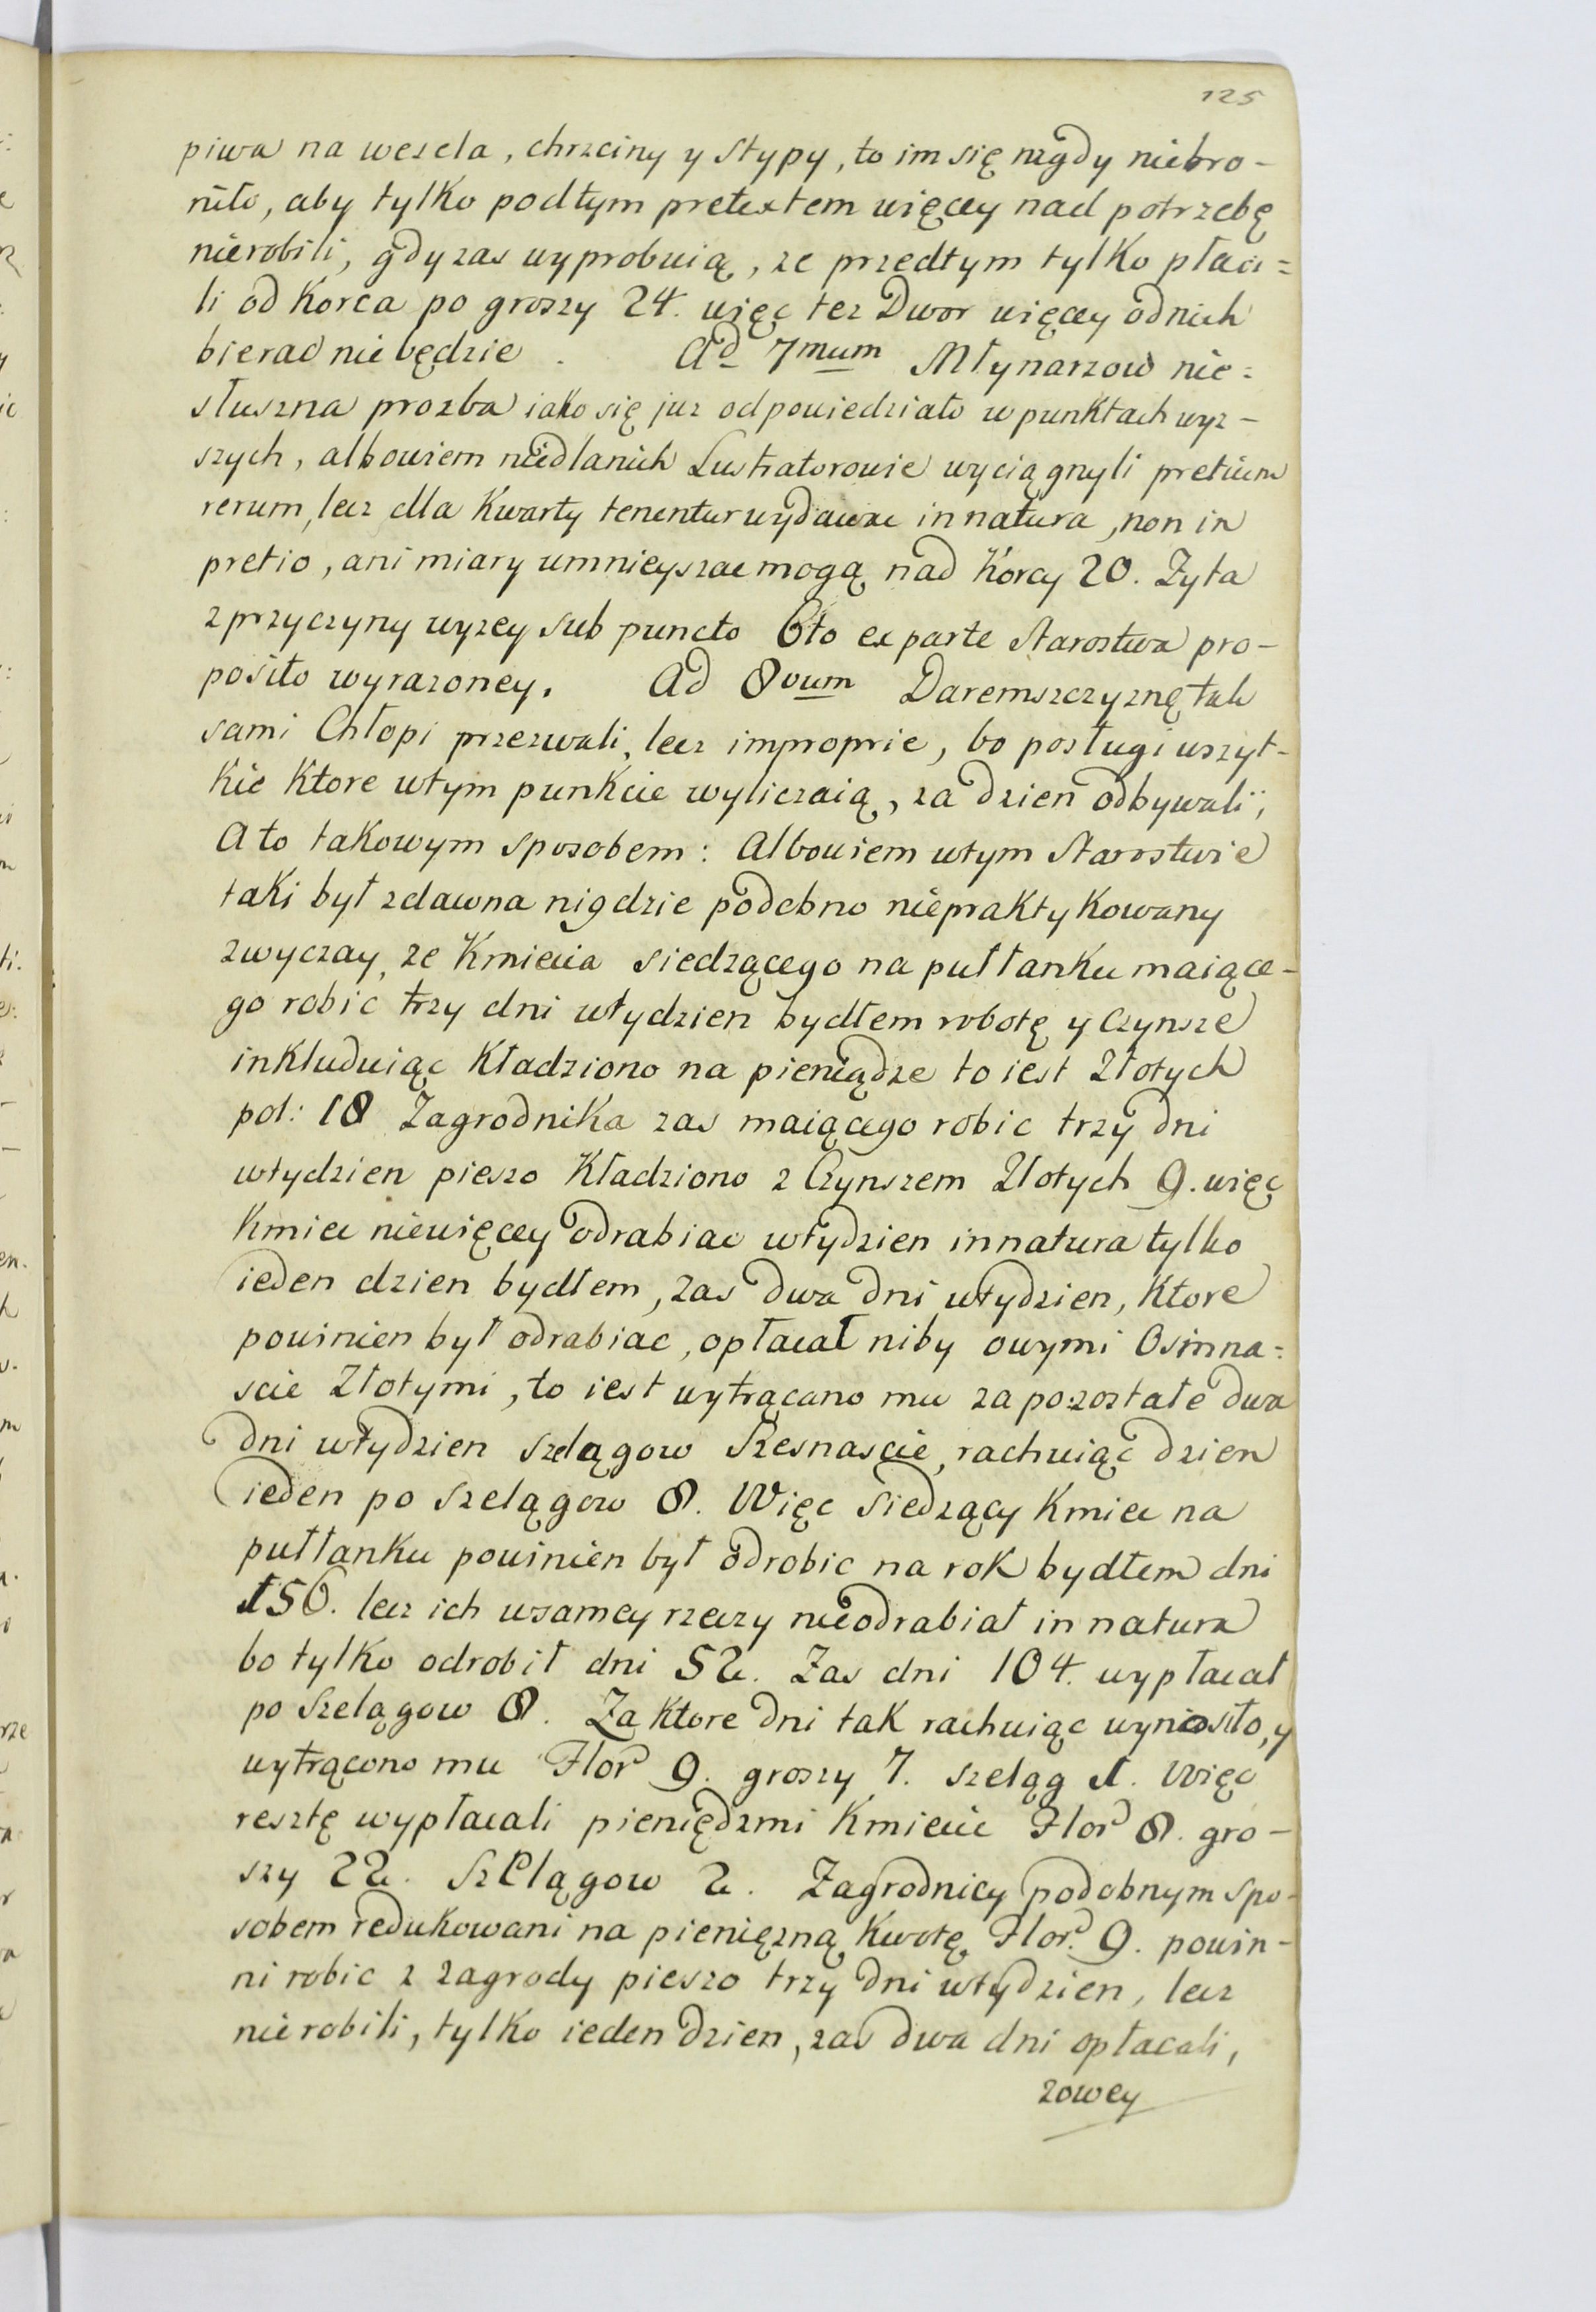 125
piwa na wesela, chrzciny y stypy, to im się nigdy niebro-
niło, aby tylko podtym pretextem więcey nad potrzebę
nierobili, gdy zas wyprobuią, ze przedtym tylko płaci=
li od Korca po groszy 24. więc tez Dwor więcey odnich
bierac niebędzie. Ad 7mum Młynarzow nie=
słuszna prozba iako się juz odpowiedziało w punktach wyz-
szych, albowiem niedlanich Lustratorowie wyciągnyli pretium
rerum, lecz dla Kwarty tenentur wydawac in natura, non in
pretio, ani miary umnieyszac mogą nad Korcy 20. Zyta
z przyczyny wyzey sub puncto 6to ex parte Starostwa pro-
posito wyrazoney. Ad 8vum Daremszczyznę tak
sami Chłopi przezwali, lecz improprie, bo posługi wszyt-
kie Ktore wtym punkcie wyliczaią, za dzien odbywali,
A to takowym sposobem: Albowiem wtym Starostwie
taki był zdawna nigdzie podobno niepraktykowany
zwyczay, ze Kmiecia siedzącego na pułłanku maiące-
go robic trzy dni wtydzien bydłem robotę y Czynsze
inkluduiąc Kładziono na pieniądze to iest Złotych
pol: 18 Zagrodnika zas maiącego robic trzy dni
wtydzien pieszo Kładziono z Czynszem Złotych 9. więc
Kmiec niewięcey odrabiac wtydzien in natura tylko
ieden dzien bydłem, zas dwa dni wtydzien, Ktore
powinien był odrabiac, opłacał niby owymi Osmna=
scie Złotymi, to iest wytrącano mu za pozostałe dwa
dni wtydzien szelągow Szesnascie, rachuiąc dzien
ieden po szelągow 8. Więc siedzący Kmiec na
pułłanku powinien był odrobic na rok bydłem dni
156. lecz ich wsamey rzeczy nieodrabiał in natura
bo tylko odrobił dni 52. Zas dni 104. wypłacał
po szelągow 8. Za Ktore dni tak rachuiąc wyniosło, y
wytrącono mu Flor 9. groszy 7. szeląg 1. Więc
resztę wypłacali pieniędzmi Kmiecie Flor 8. gro-
szy 22. Szelągow 2. Zagrodnicy podobnym spo-
sobem redukowani na pieniężną Kwotę Flor. 9. powin-
ni robic z zagrody pieszo trzy dni wtydzien, lecz
nierobili, tylko ieden dzien, zas dwa dni opłacali,
zowey